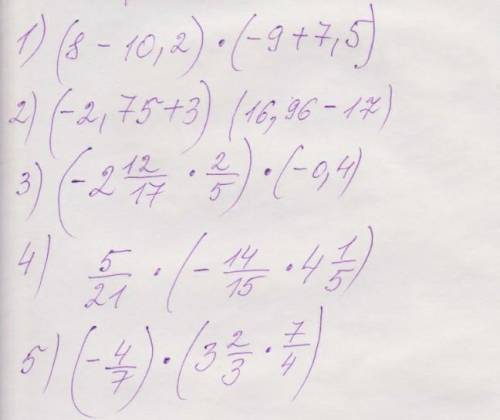 1) (8 - 10,2) · (-9 + 7,5)
2) (-2,75 + 3) (16,96 - 17)
3) (-2 12/17 · 2/5) · (-0,4)
4) 5/21 · (- 14/15 · 4 1/5)
5) (- 4/7) · (3 2/3 · 7/4)